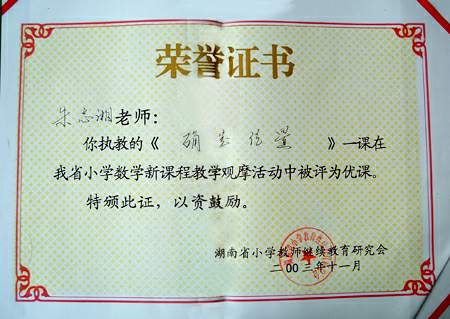 荣誉证书
朱志湘老师：
你执教的《 确定位置 》一课在
我省小学数学新课程教学观摩活动中被评为优课。
特颁此证，以资鼓励。
湖南省小学教师继续教育研究会
二00三年十一月